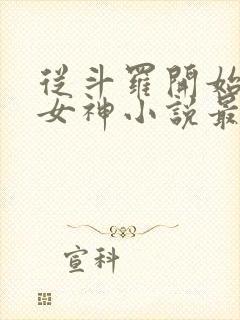 從斗羅開始
女神小說最
宣科